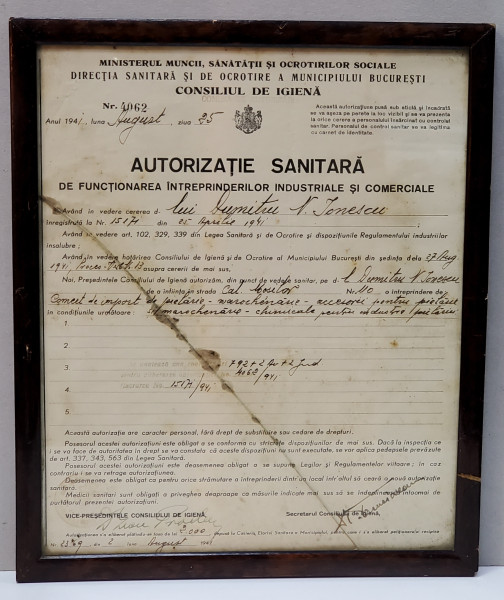 MINISTERUL MUNCII, SĂNĂTĂȚII ȘI OCROTIRILOR SOCIALE
DIRECȚIA SANITARĂ ȘI DE OCROTIRE A MUNICIPIULUI BUCUREȘTI
CONSILIUL DE IGIENĂ
Nr. 4062
Anul 1941, luna August, ziua 25
Această autorizațiune pusă sub sticlă și încadrată
se va așeza pe perete la loc vizibil și se va prezenta
la orice cerere a personalului însărcinat cu controlul
sanitar. Personalul de control sanitar se va legitima
cu carnet de identitate.
AUTORIZAȚIE SANITARĂ
DE FUNCȚIONAREA ÎNTREPRINDERILOR INDUSTRIALE ȘI COMERCIALE
Având în vedere cererea d-lui Dumitru N. Ionescu
înregistrată la Nr. 15171 din 25 Aprilie 1941
Având în vedere art. 102, 329, 339 din Legea Sanitară și de Ocrotire și dispozițiunile Regulamentului industriilor
insalubre;
Având în vedere hotărîrea Consiliului de Igienă și de Ocrotire al Municipiului București din ședința dela 27 Aug
1941 asupra cererii de mai sus,
Noi, Președintele Consiliului de Igienă autorizăm, din punct de vedere sanitar, pe d-l Dumitru N. Ionescu
de a înființa în strada Cal. Moșilor No. 110 o întreprindere de
Comerț de import de pielărie - marochinărie - accesorii pentru pielărie
în condițiunile următoare: și marochinărie - chimicale pentru industria pielăriei
1
2
3
792+2
4062/941
4
15171/941
5
Această autorizație are caracter personal, fără drept de substituire sau cedare de drepturi.
Posesorul acestei autorizațiuni este obligat a se conforma cu strictețe dispozițiunilor de mai sus. Dacă la inspecția ce
i se va face de autoritatea în drept se va constata că aceste dispozițiuni nu sunt executate, se vor aplica pedepsele prevăzute
de art. 337, 343, 563 din Legea Sanitară.
Posesorul acestei autorizațiuni este deasemenea obligat a se supune Legilor și Regulamentelor viitoare; în caz
contrariu i se va retrage autorizațiunea.
Deasemenea este obligat ca pentru orice strămutare a întreprinderii dintr'un local într'altul să ceară o nouă autorizație
sanitară.
Medicii sanitari sunt obligați a priveghea deaproape ca măsurile indicate mai sus să se îndeplinească informat de
purtătorul prezentei autorizațiuni.
VICE-PREȘEDINTELE CONSILIULUI DE IGIENĂ,
Secretarul Consiliului de Igienă,
Autorizațiunea s'a eliberat plătindu-se taxa de lei 2.000
August 1941